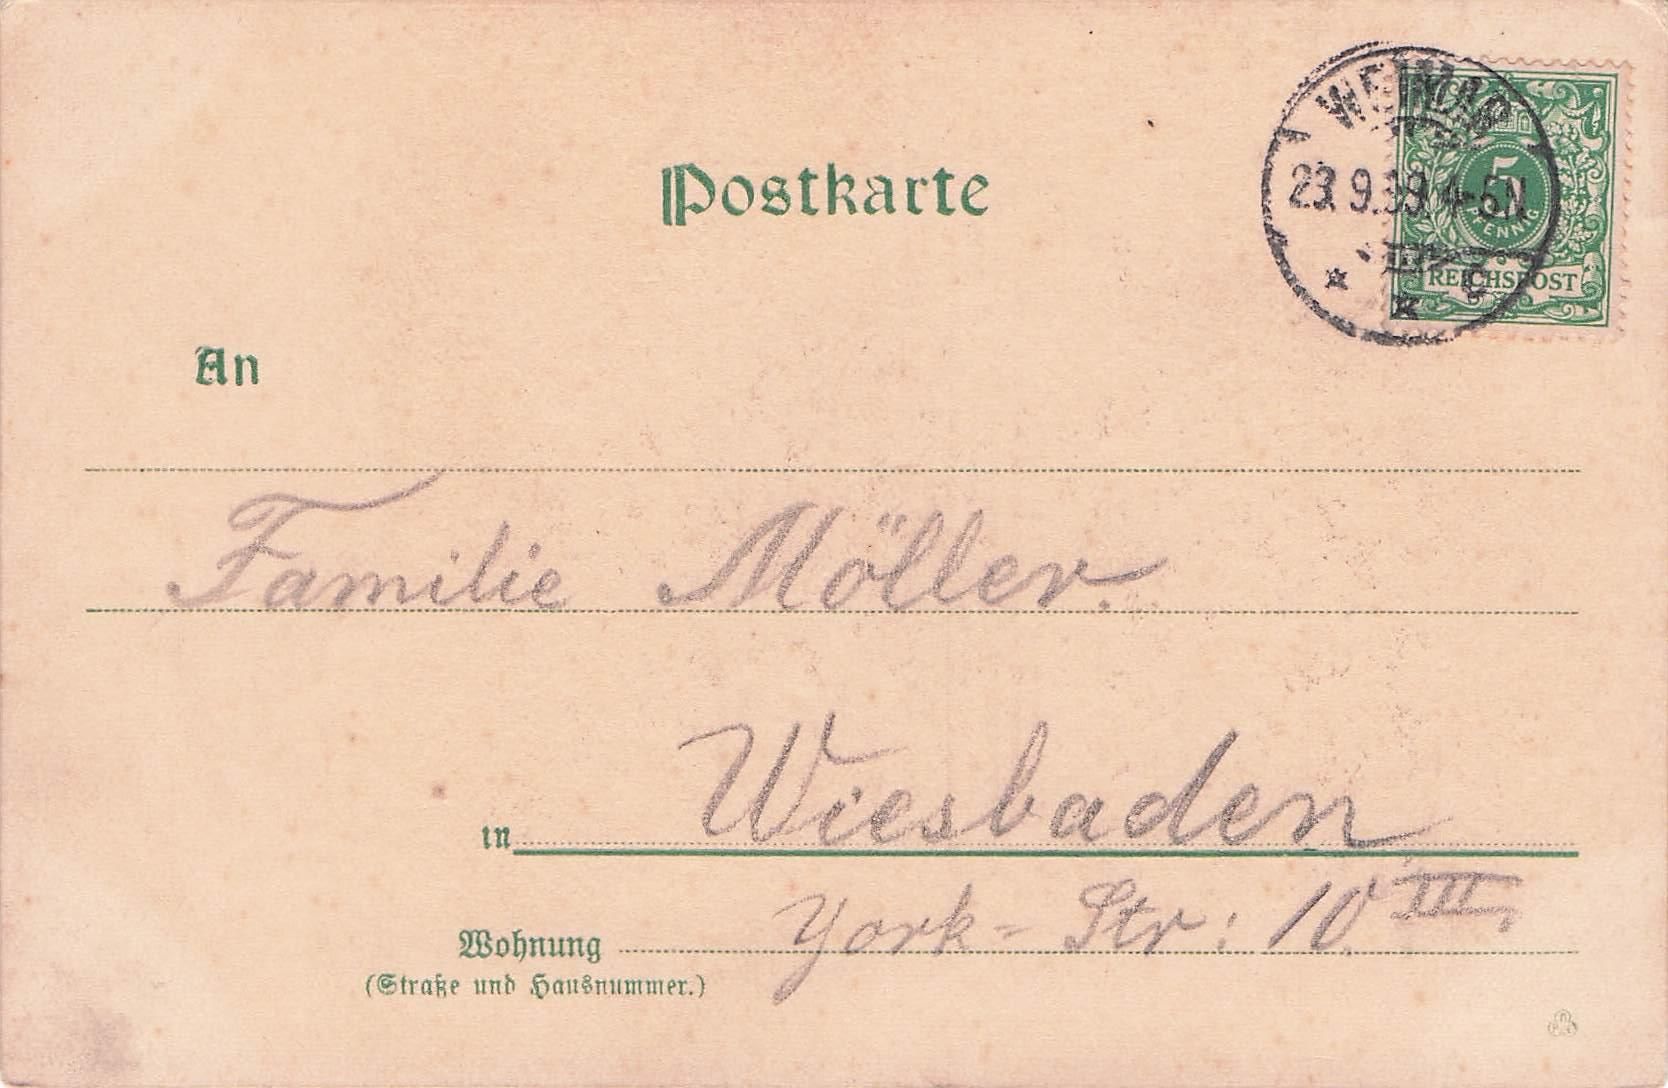 Postkarte
WEIMAR
23.9.99.4-5N
5
PFENNIG
REICHSPOST
An
Familie Möller.
in Wiesbaden
Wohnung York-Str: 10 III
(Straße und Hausnummer.)